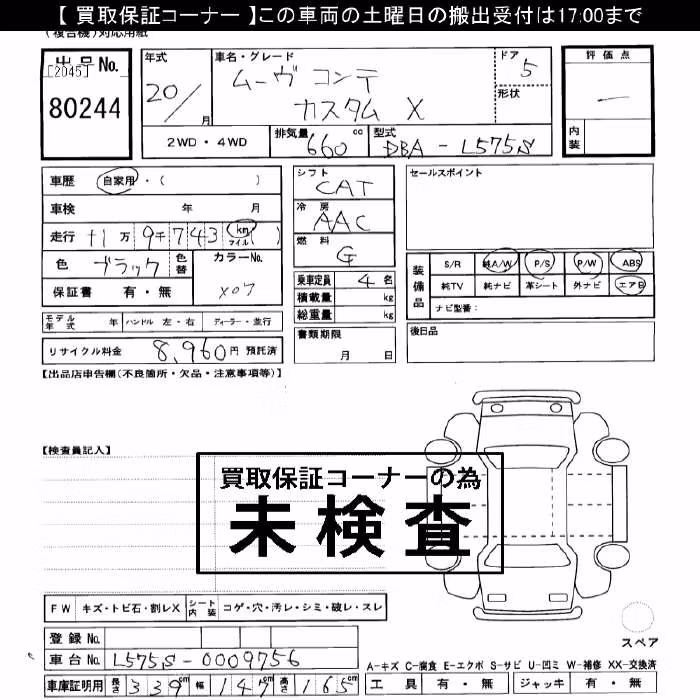 【 買取保証コーナー 】この車両の土曜日の搬出受付は17:00まで
(複合機)対応用紙
出品No.
[2045]
80244
年式 20/ 月
車名・グレード ムーヴ コンテ
カスタム X
ドア 5
形状
評価点
—
内装
2WD・4WD
排気量 660 cc
型式 DBA - L575S
車歴 自家用・( )
車検 年 月
走行 11万 9千743 km マイル ( )
色 ブラック 色替 カラーNo. X07
保証書 有・無
モデル年式 年 ハンドル 左・右 ディーラー・並行
リサイクル料金 8,960円 預託済
シフト CAT
冷房 AAC
燃料 G
乗車定員 4名
積載量 kg
総重量 kg
書類期限
月 日
セールスポイント
装備品 S/R 純A/W P/S P/W ABS
純TV 純ナビ 革シート 外ナビ エアB
ナビ型番:
後日品
【出品店申告欄(不良箇所・欠品・注意事項等)】
【検査員記入】
買取保証コーナーの為
未検査
FW キズ・トビ石・割レX シート内装 コゲ・穴・汚レ・シミ・破レ・スレ
登録No.
車台No. L575S-0009756
車庫証明用 長さ 339cm 幅 147cm 高さ 165cm
スペア
A-キズ C-腐食 E-エクボ S-サビ U-凹ミ W-補修 XX-交換済
工具 有・無 ジャッキ 有・無